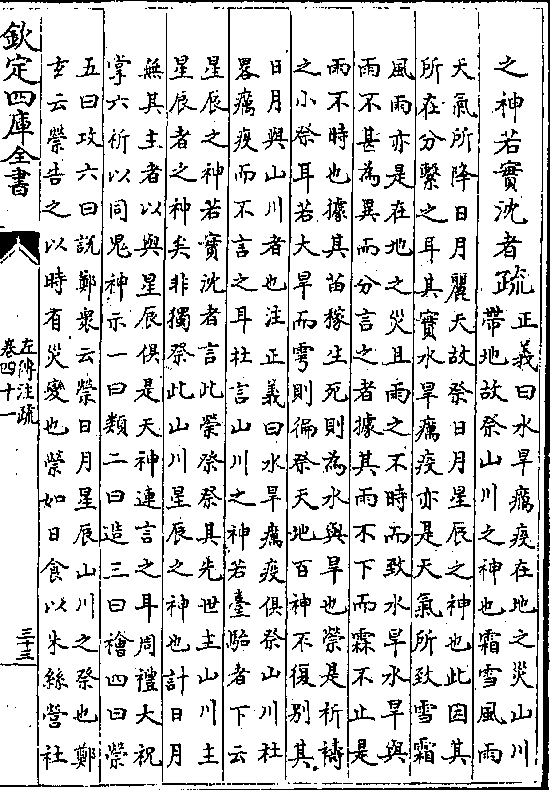 之神若實沈者疏正義曰水旱癘疫在地之災山川
帶地故祭山川之神也霜雪風雨
天氣所降日月麗天故祭日月星辰之神也此因其
所在分繫之耳其實水旱癘疫亦是天氣所致雪霜
風雨亦是在地之災且雨之不時而致水旱水旱與
雨不甚為異而分言之者據其雨不下而霖不止是
雨不時也據其苗稼生死則為水與旱也禜是祈禱
之小祭耳若大旱而雩則徧祭天地百神不復別其
日月與山川者也注正義曰水旱癘疫俱祭山川社
畧癘疫而不言之耳社言山川之神若臺駘者下云
星辰之神若實沈者言此禜祭祭其先世主山川主
星辰者之神矣非獨祭此山川星辰之神也計日月
無其主者以與星辰俱是天神連言之耳周禮大祝
掌六祈以同鬼神示一曰類二曰造三曰禬四曰禜
五曰攻六曰說鄭衆云禜日月星辰山川之祭也鄭
玄云禜告之以時有災變也禜如日食以朱絲營社
欽定四庫全書
左傳注疏
卷四十一
三十三